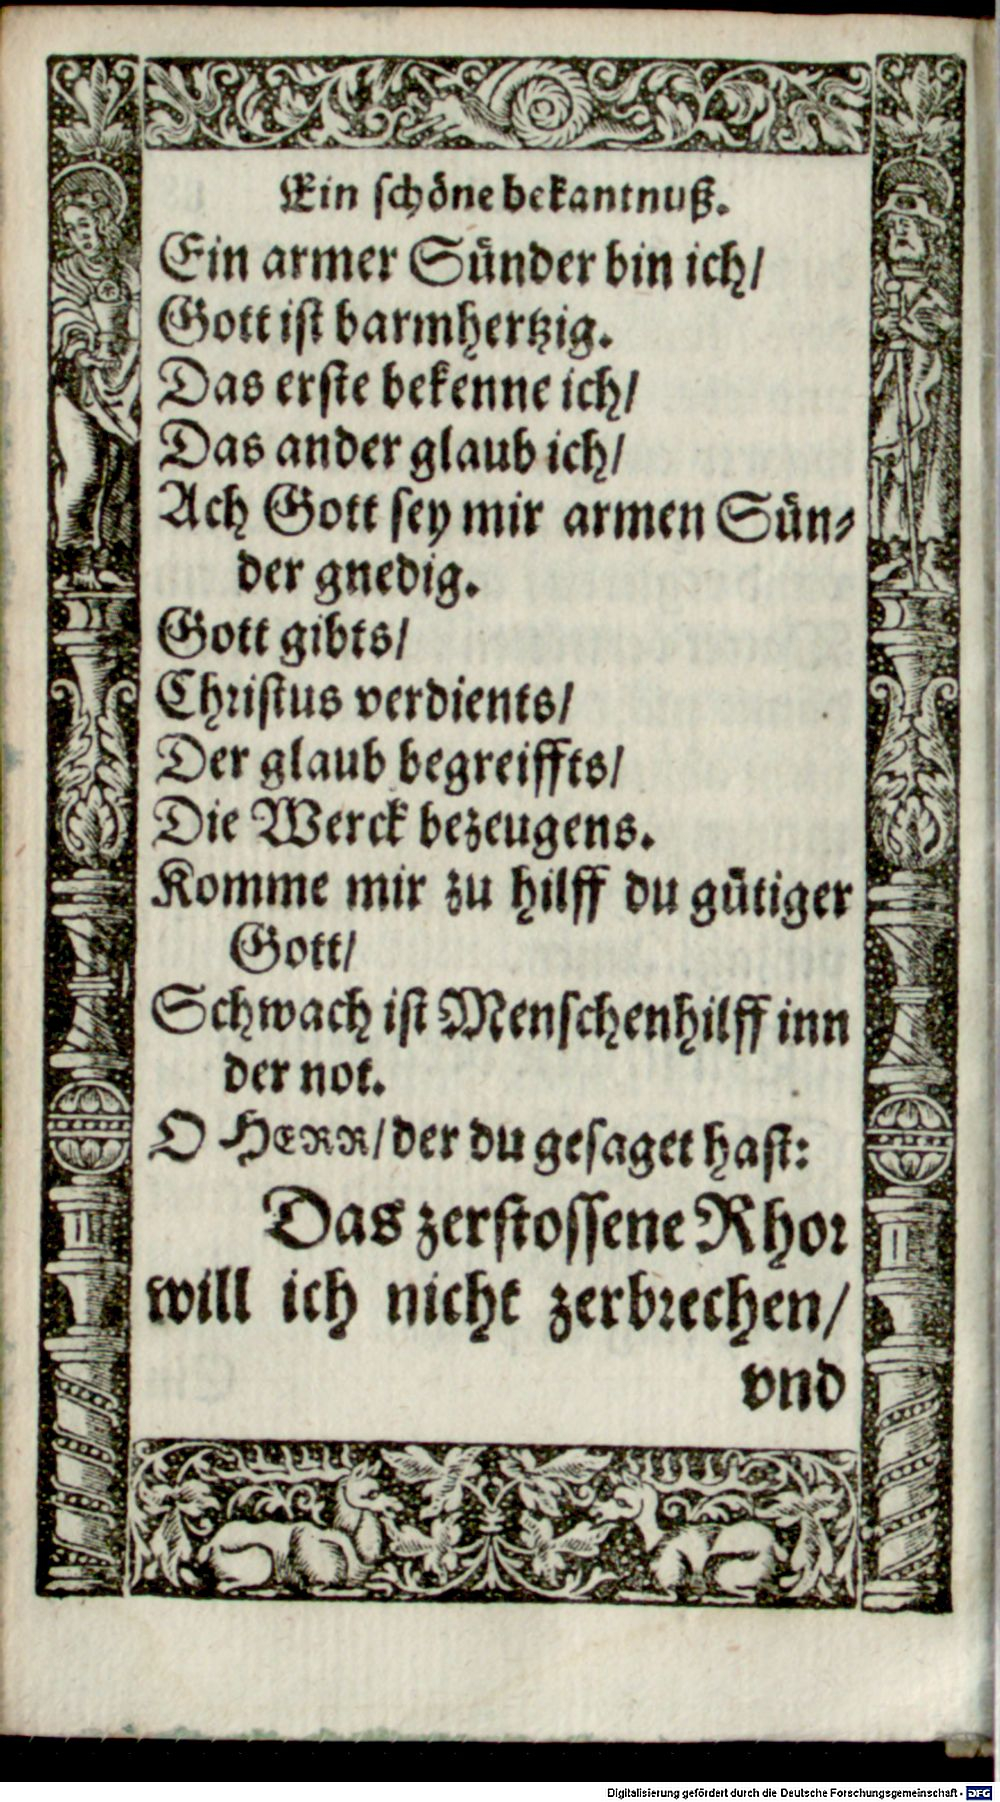 Ein schöne bekantnuß.
Ein armer Sünder bin ich/
Gott ist barmhertzig.
Das erste bekenne ich/
Das ander glaub ich/
Ach Gott sey mir armen Sün-
der gnedig.
Gott gibts/
Christus verdients/
Der glaub begreiffts/
Die Werck bezeugens.
Komme mir zu hilff du gütiger
Gott/
Schwach ist Menschenhilff inn
der not.
O HERR/ der du gesaget hast:
Das zerstossene Rhor
will ich nicht zerbrechen/
vnd
Digitalisierung gefördert durch die Deutsche Forschungsgemeinschaft - DFG